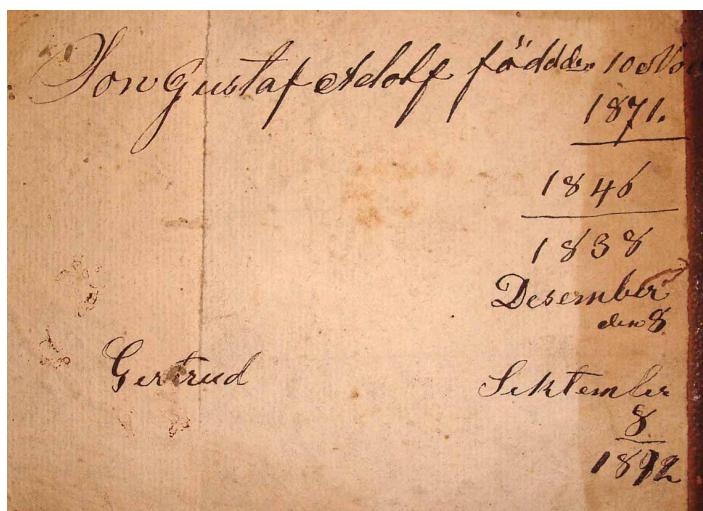 Son Gustaf Adolf född den 10 Nov
1871.
1846
1838
Desember
den 8
Gertrud Sektember
8
1892